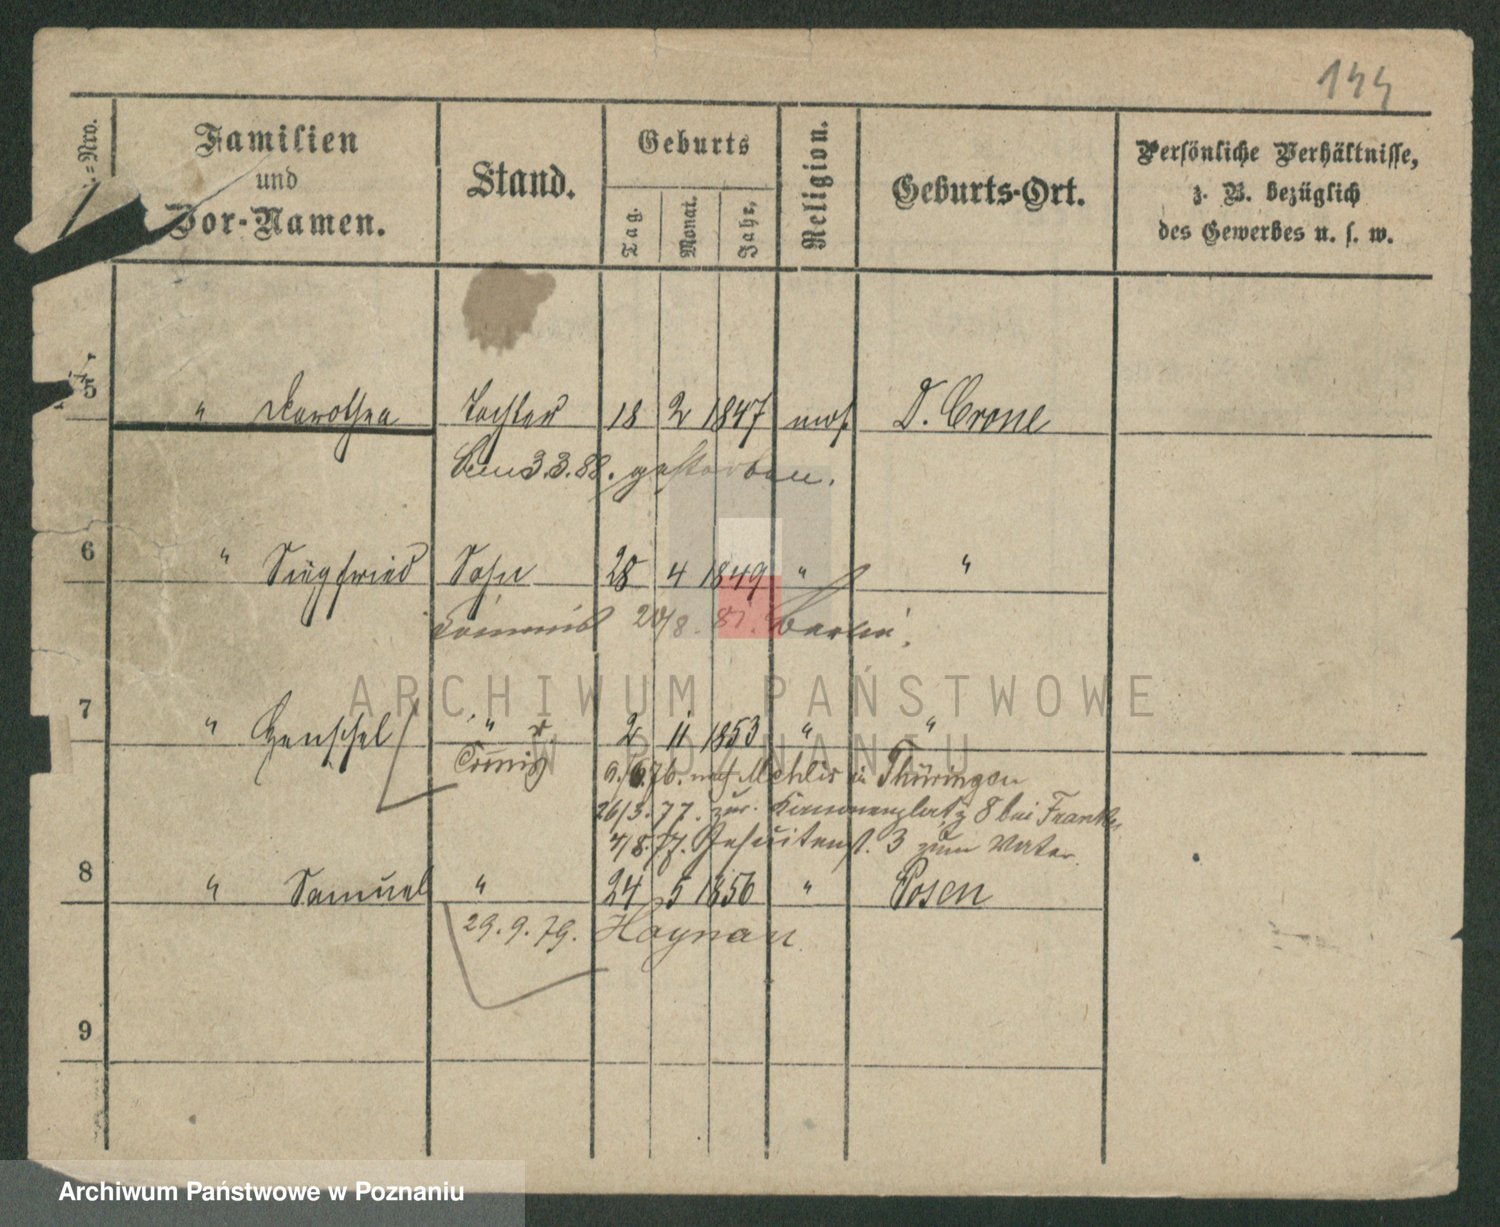 144
=Nro.
Familien
und
Vor-Namen.
Stand.
Geburts
Tag.
Monat.
Jahr,
Religion.
Geburts-Ort.
Persönliche Verhältnisse,
z. B. bezüglich
des Gewerbes u. s. w.
5 " Dorothea Tochter 18 2 1847 mos. D. Crone
3.3.88. gestorben.
6 " Siegfried Sohn 28 4 1849 " "
20/8. 81. Berlin.
7 " Henschel " 2 11 1853 " "
9./6.76. nach Mehlis in Thüringen
26/3.77. zur. Kanonenplatz 8 bei
4/8.77. Jesuitenst. 3 zum Vater.
8 " Samuel " 24 5 1856 " Posen
29.9.79. Haynau
9
ARCHIWUM PAŃSTWOWE
W POZNANIU
Archiwum Państwowe w Poznaniu